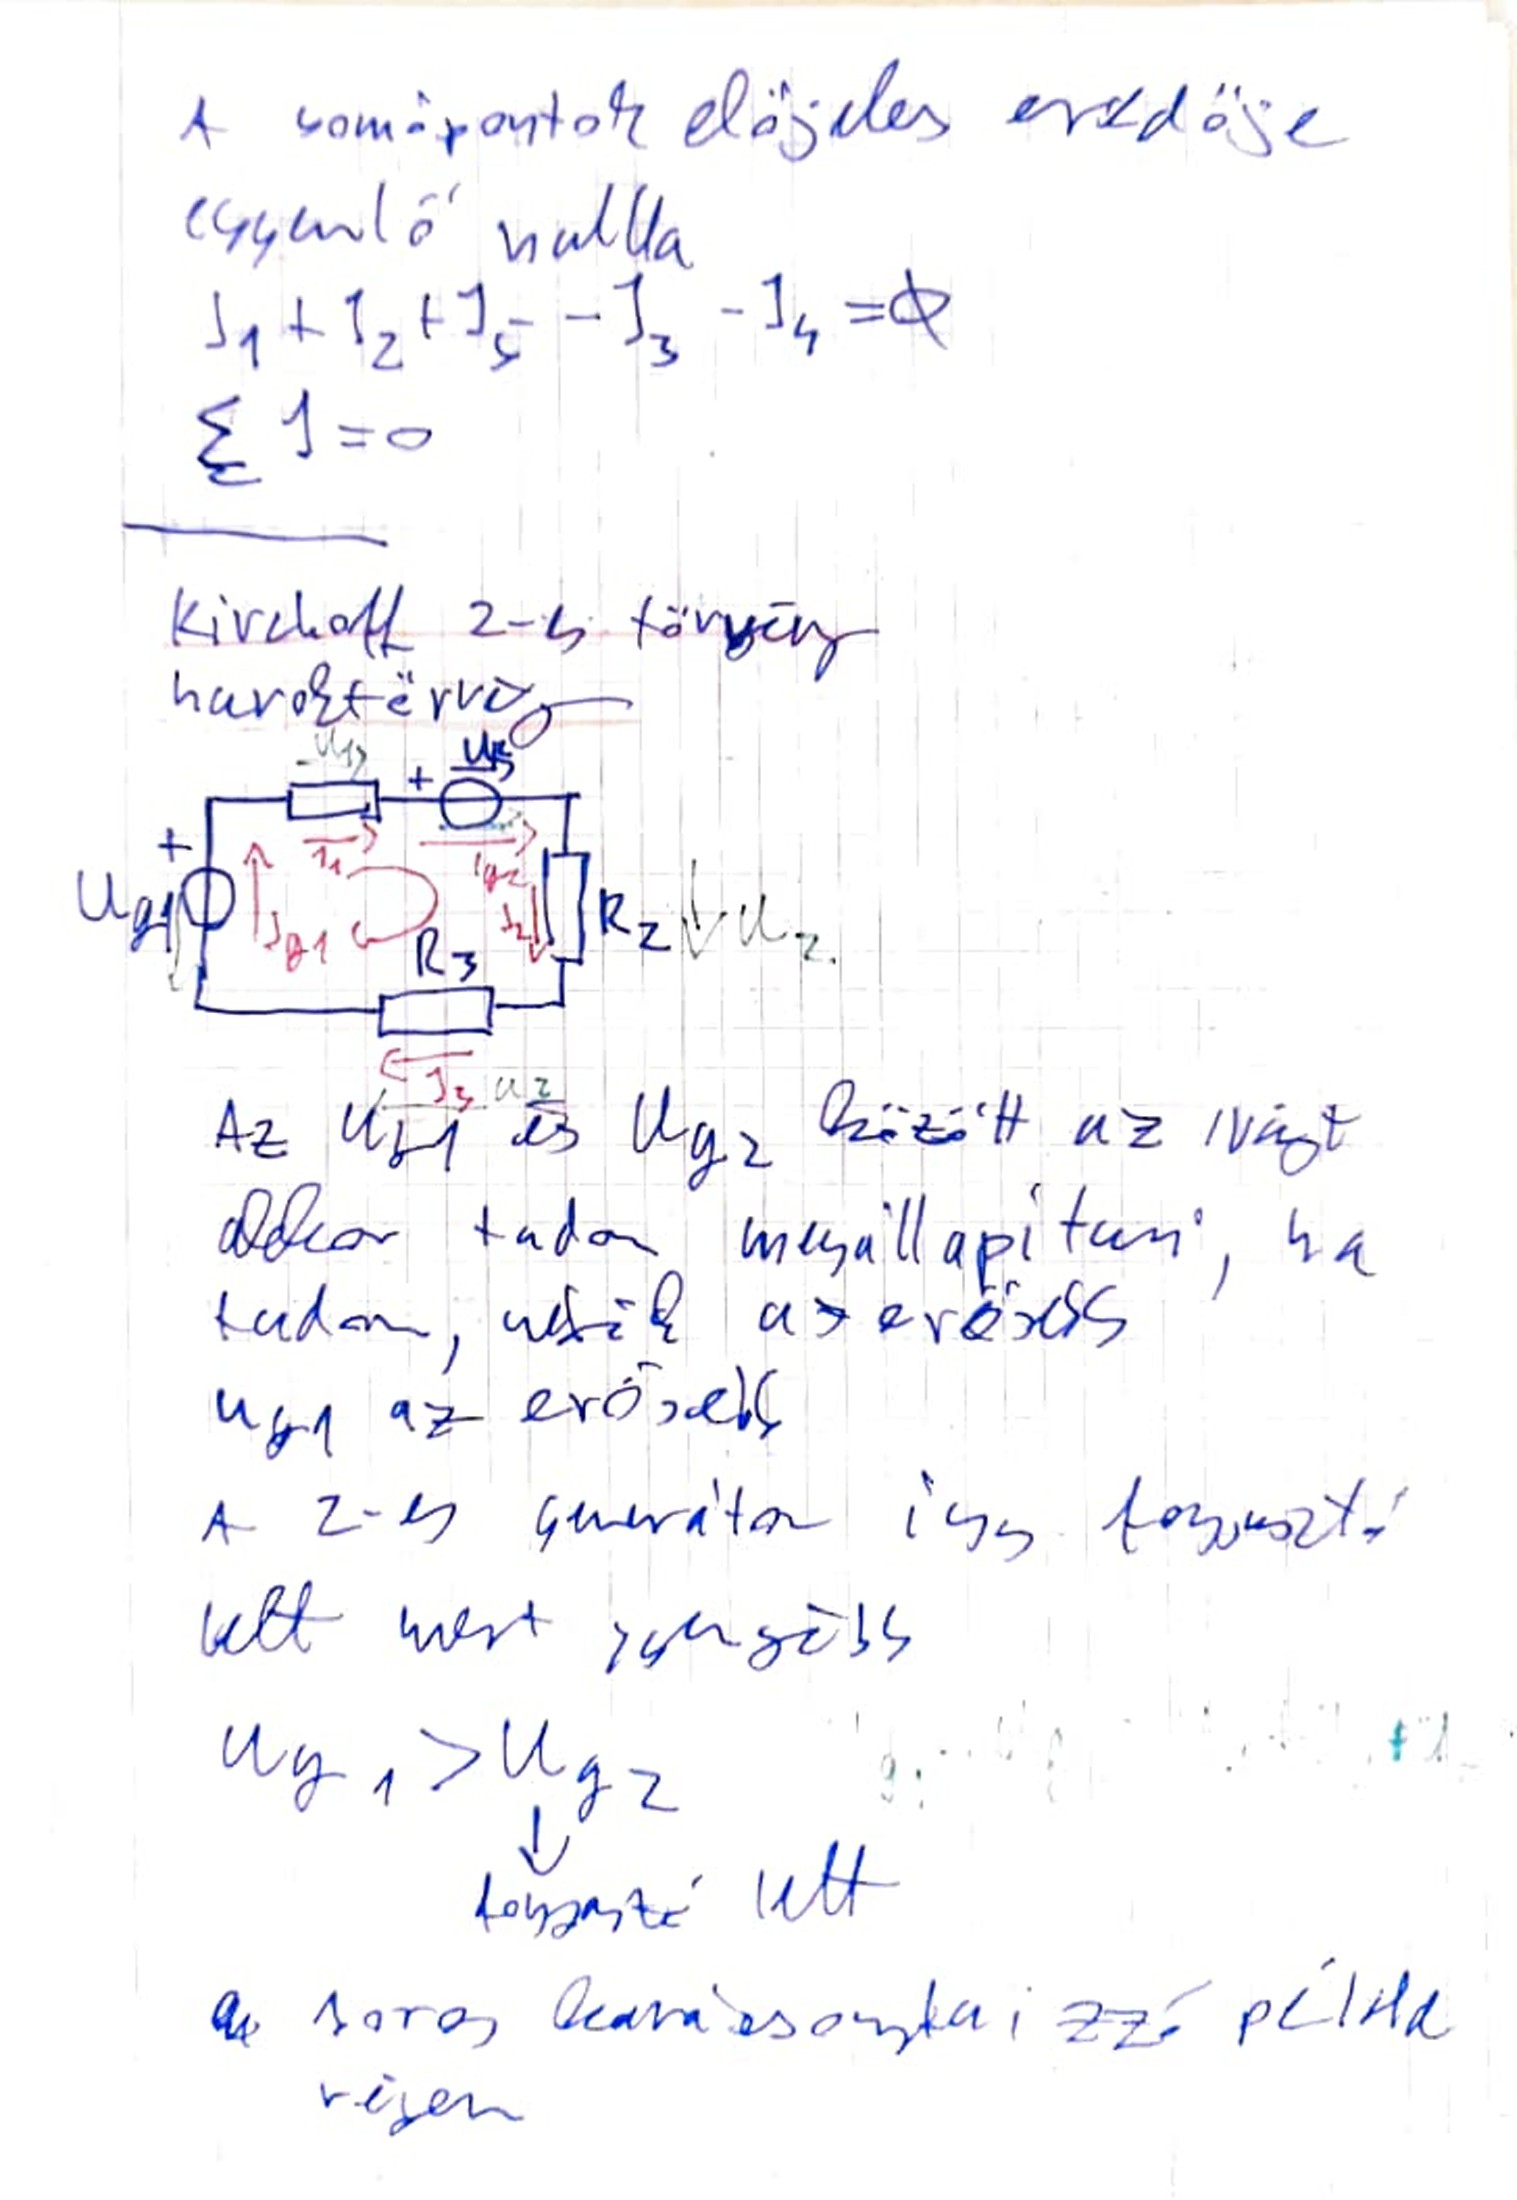 A csomópontok előjeles eredője
egyenlő nulla
I1 + I2 + I5 - I3 - I4 = Ø
Σ I = 0
Kirchoff 2-es törvény
huroktörvény
U1
+ U5
+
I1
Ig2
Ug1
Ig1
I2
R2 U2
R3
I3
Az Ug1 és Ug2 között az irányt
akkor tudom megállapítani, ha
tudom, melyik az erősebb
Ug1 az erősebb
A 2-es generátor így fogyasztó
lett mert gyengébb
Ug1 > Ug2
↓
fogyasztó lett
a soros karácsonyfa izzó példa
régen